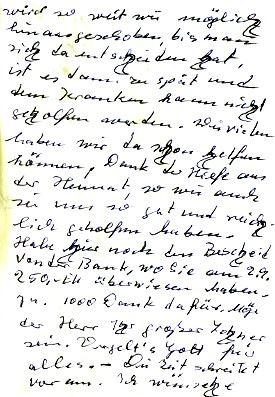 wird so weit wie möglich
hinausgeschoben, bis man
sich da entschieden hat,
ist es dann zu spät und
dem Kranken kann nicht
geholfen werden. Wie vielen
haben wir da schon helfen
können, Dank der Hilfe aus
der Heimat, so wie auch
Sie uns so gut und reich-
lich geholfen haben.
Habe hier noch den Bescheid
von der Bank, wo Sie am 2.9.
250,- überwiesen haben.
1000 Dank dafür. Möge
der Herr Ihr großer Lohner
sein. Vergelt's Gott für
alles. - Die Zeit schreitet
voran. Ich wünsche